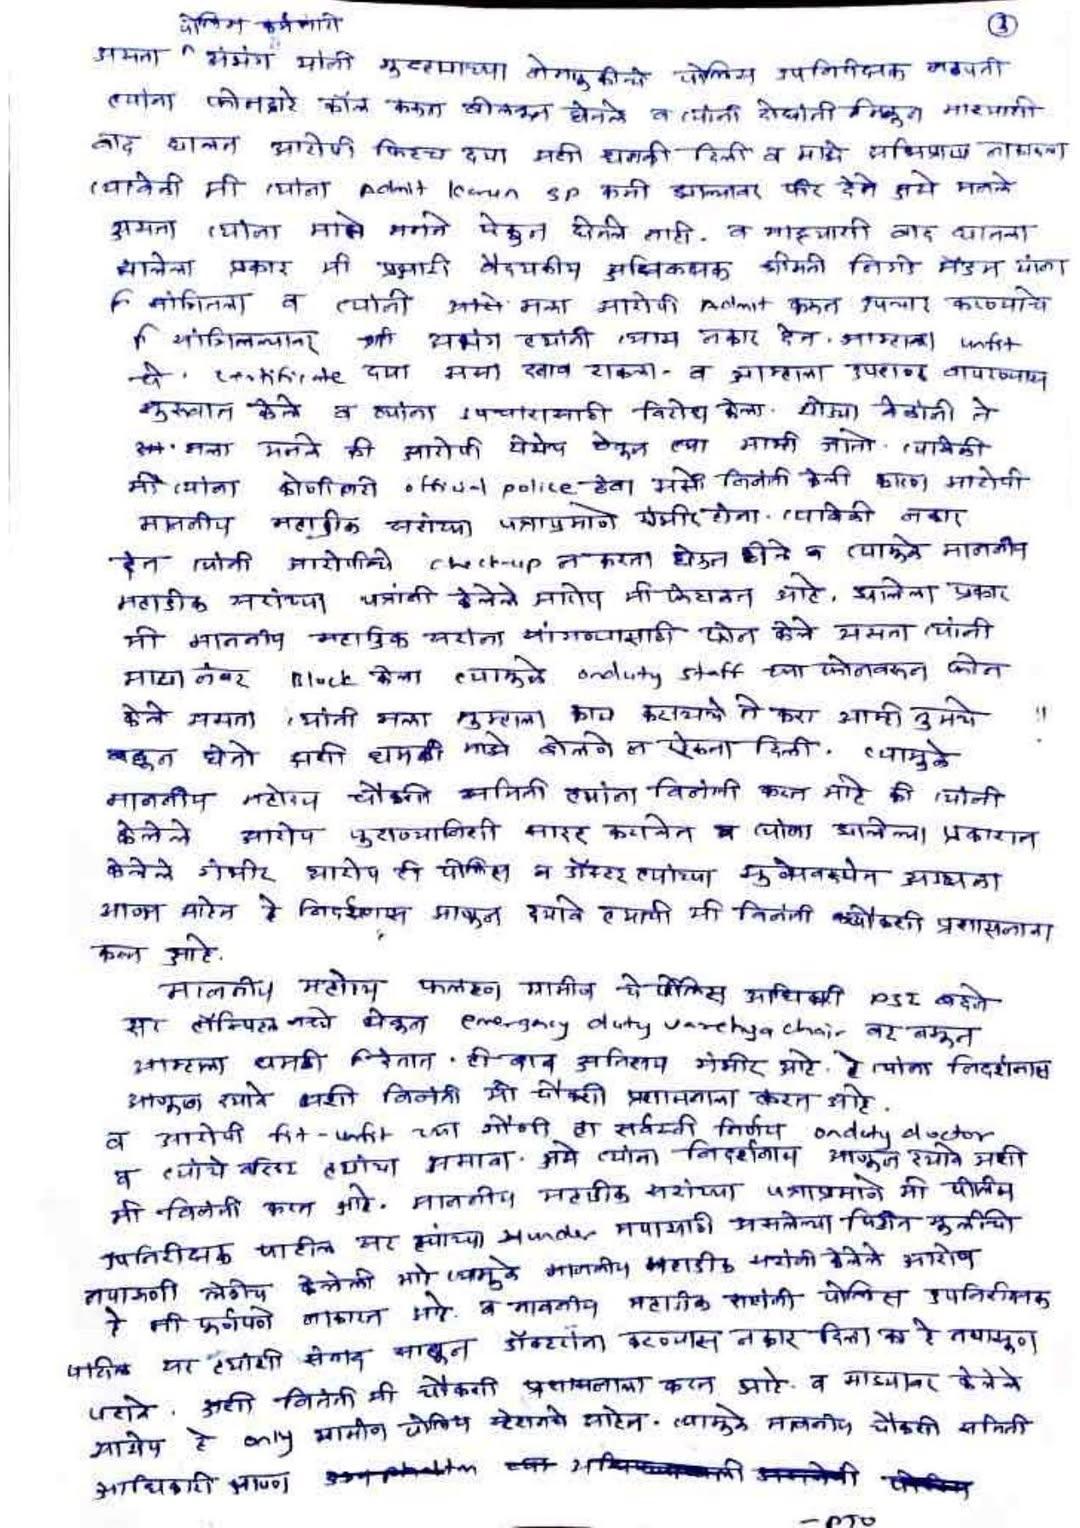 पोलिस कर्मचारी ③
असता अभंग यांनी पोलिस उपनिरीक्षक
त्यांना फोनद्वारे कॉल करून बोलवून घेतले व त्यांनी दोघांनी मिळून माझ्याशी
वाद घालत आरोपी फिटच द्या अशी धमकी दिली व माझे अभिप्राय
त्यावेळी मी त्यांना Admit करून BP कमी झाल्यावर फीट देते असे म्हनले
असता त्यांना माझे म्हनने ऐकून घेतले नाही. व माझ्याशी वाद घातला
झालेला प्रकार मी प्रभारी वैद्यकीय अधिक्षक श्रीमती मॅडम यांना
सांगितला व त्यांनी असे मला आरोपी Admit करून उपचार करण्याचे
सांगितल्यावर श्री अभंग त्यांनी त्यास नकार देत. आम्हाला unfit
चे. certificate द्या असा दबाव टाकला. व आम्हाला वापरण्यास
सुरुवात केले व त्यांना उपचारासाठी विरोध केला. थोड्या वेळानी ते
मला म्हनले की आरोपी येथेच ठेवून त्या आम्ही जातो. त्यावेळी
मी त्यांना कोणीतरी official police ठेवा असे विनंती केली कारण आरोपी
माननीय महाडीक सरांच्या पत्राप्रमाणे गंभीर होता. त्यावेळी नकार
देत त्यांनी आरोपीचे check-up न करता घेऊन गेले व त्यामुळे माननीय
महाडीक सरांच्या पत्रांनी केलेले आरोप मी फेटाळत आहे. झालेला प्रकार
मी माननीय महाडिक सरांना सांगण्यासाठी फोन केले असता त्यांनी
माझा नंबर Block केला त्यामुळे onduty staff च्या फोनवरून फोन
केले असता त्यांनी मला तुम्हाला काय करायचे ते करा आम्ही तुमचे !!
बघून घेतो अशी धमकी माझे बोलणे न ऐकता दिली. त्यामुळे
माननीय महोदय चौकशी समिती त्यांना विनंती करत आहे की त्यांनी
केलेले आरोप पुराव्यानिशी सादर करावेत व त्यांना झालेल्या प्रकारात
केलेले गंभीर आरोप ही पोलिस व डॉक्टर त्यांच्या
हे निदर्शनास आणून द्यावे त्यासाठी मी विनंती चौकशी प्रशासनाला
करत आहे.
माननीय महोदय फलटण ग्रामीण चे पोलिस अधिकारी PSI बदने
सर हॉस्पिटल मध्ये येवून emergency duty varchya chair वर बसून
आम्हाला धमकी देतात. ही बाब अतिशय गंभीर आहे. हे त्यांना निदर्शनास
आणून द्यावे अशी विनंती मी चौकशी प्रशासनाला करत आहे.
व आरोपी fit-unfit च्या हा सर्वस्वी निर्णय onduty doctor
व त्यांचे वरिष्ठ त्यांचा असावा. असे त्यांना निदर्शनास आणून द्यावे अशी
मी विनंती करत आहे. माननीय महाडीक सरांच्या पत्राप्रमाणे मी पोलीस
उपनिरीक्षक पाटील सर त्यांच्या under तपासाठी असलेल्या पिडीत मुलीची
तपासणी केलेली आहे त्यामुळे माननीय महाडीक सरांनी केलेले आरोप
हे मी पूर्णपणे नाकारत आहे. व माननीय महाडीक सरांनी पोलिस उपनिरीक्षक
पाटील सर त्यांशी संवाद साधून डॉक्टरांना करण्यास नकार दिला का हे तपासून
पहावे. अशी विनंती मी चौकशी प्रशासनाला करत आहे. व माझ्यावर केलेले
आरोप हे only ग्रामीण पोलिस स्टेशनचे आहेत. त्यामुळे माननीय चौकशी समिती
अधिकारी आपण
- PTO